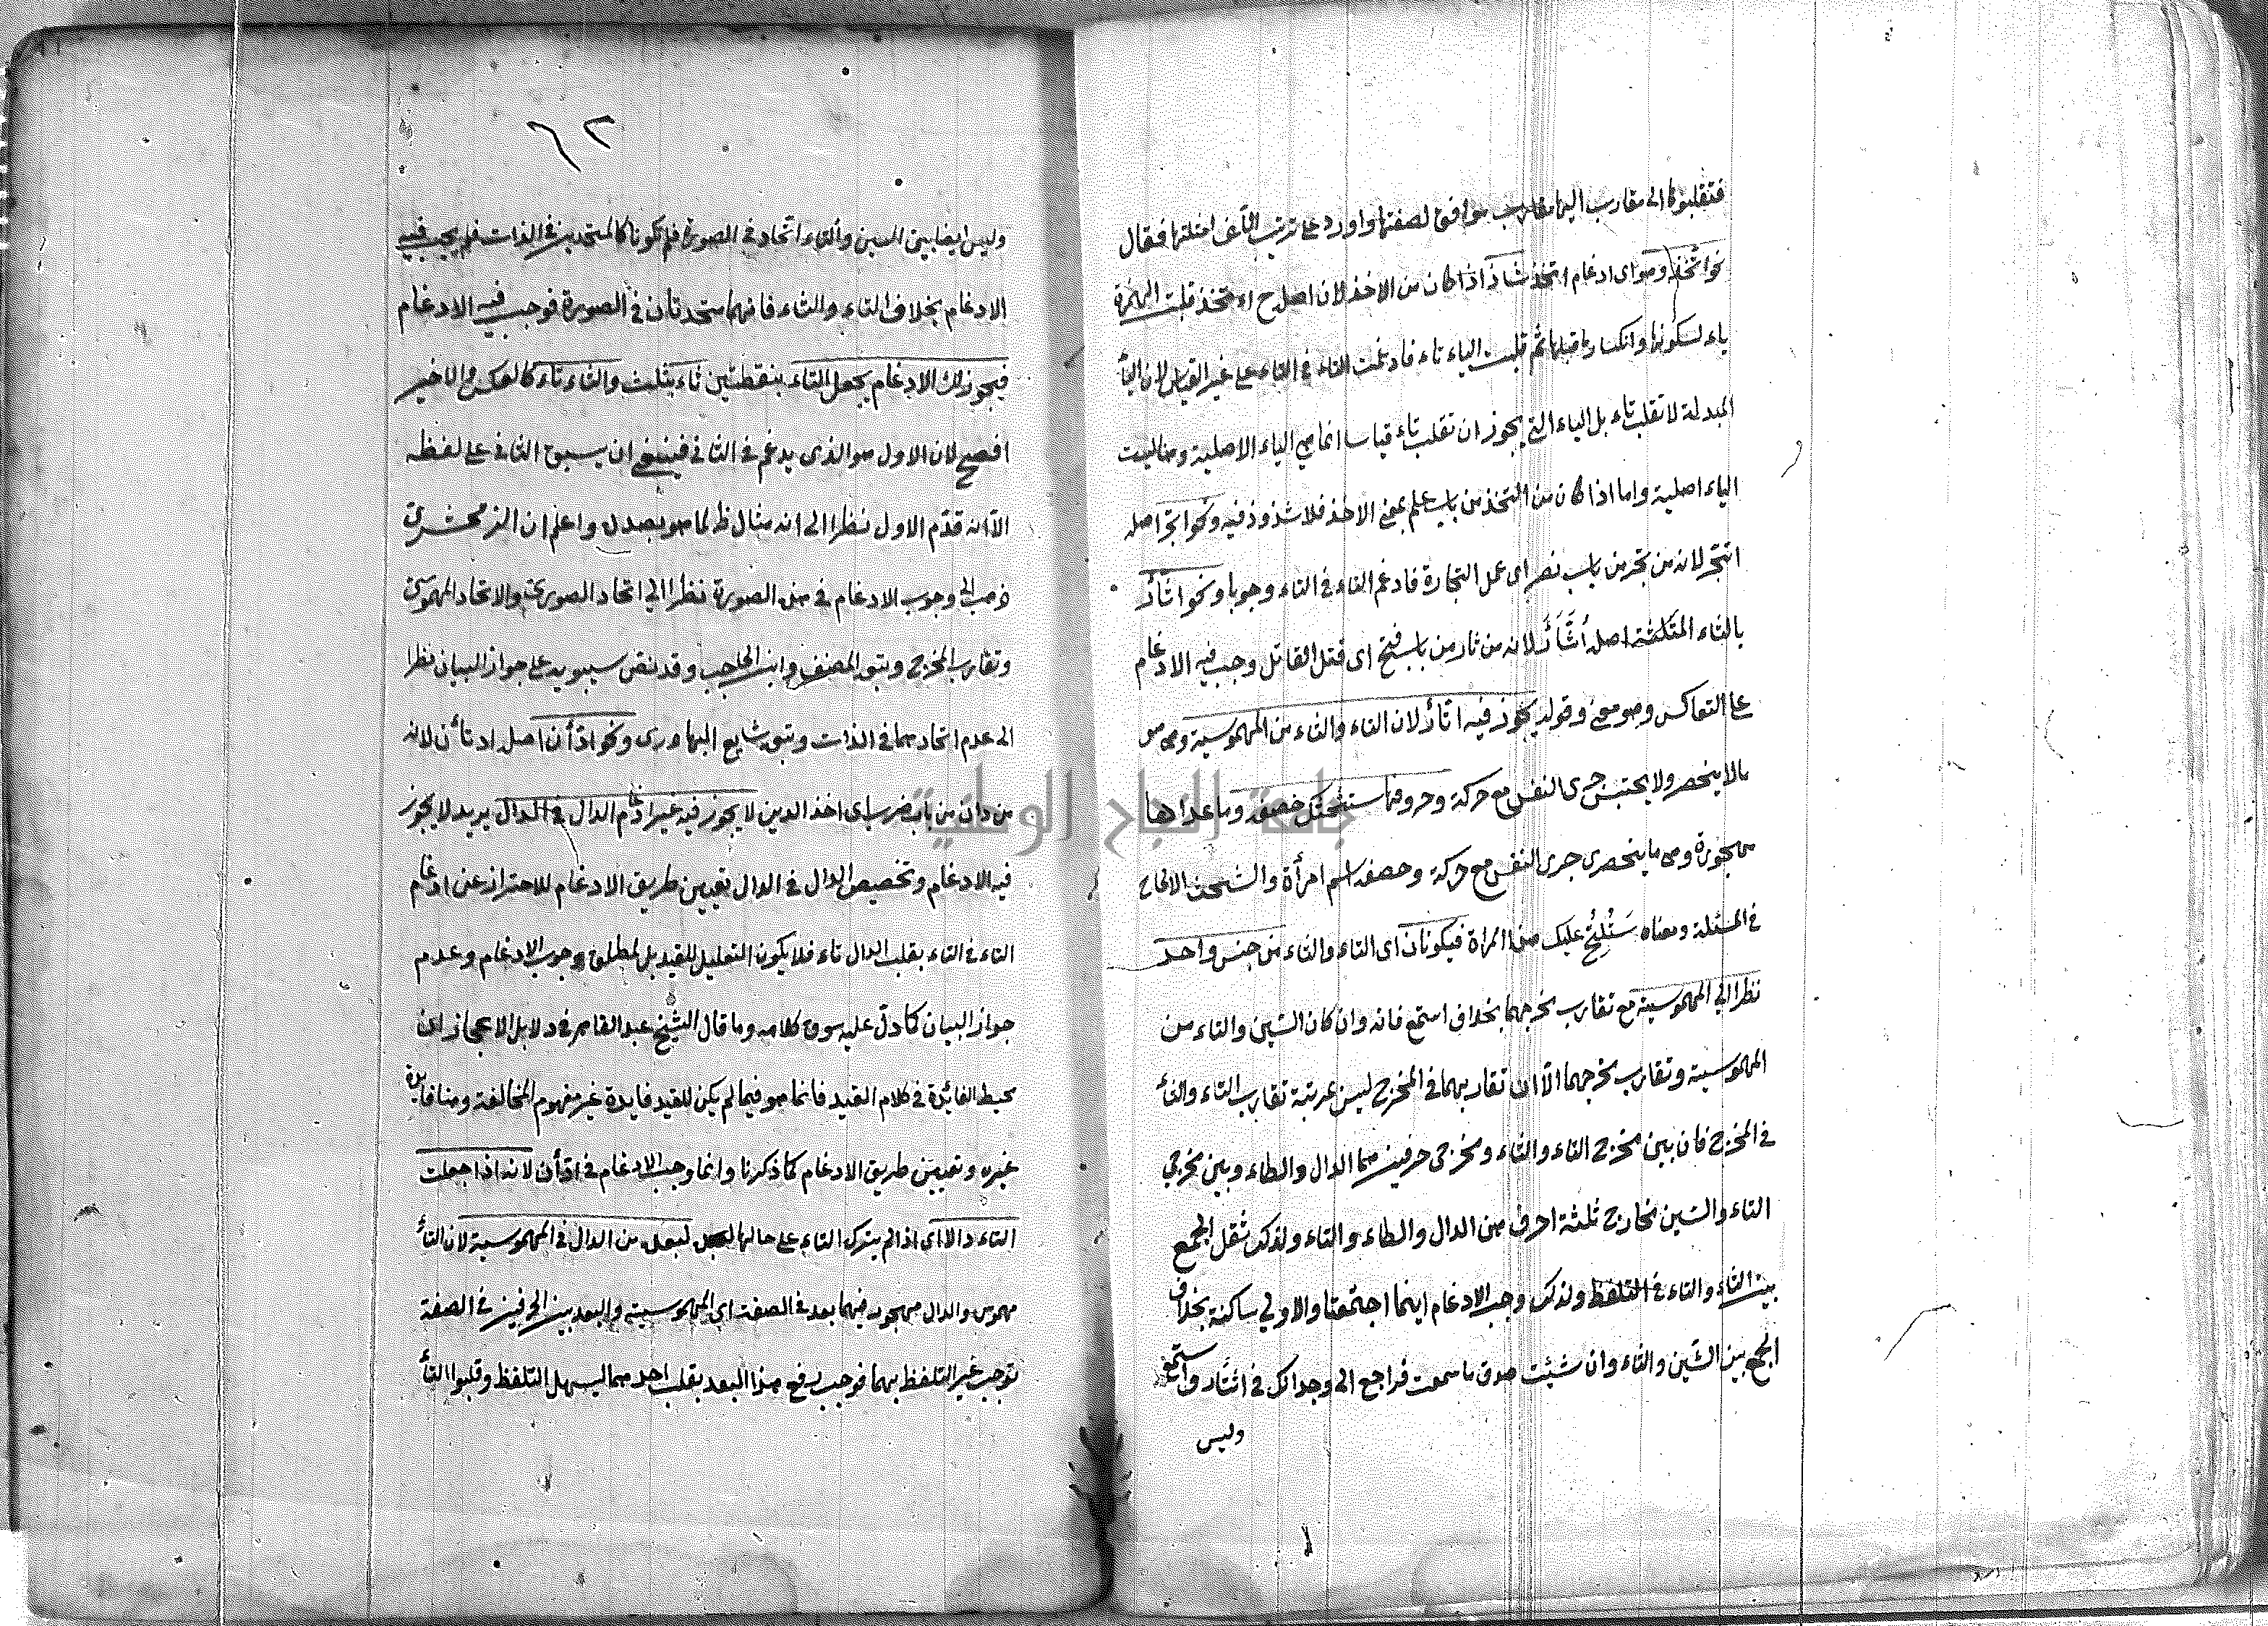 فتقلبونها الى مقارب اليها مقارب موافق لصفتها واورد على ترتيب امثلتها فقال
نحو اتخذ وهو اى ادغام اتخذ شاذ اذا كان من الاخذ لان اصله ح اءتخذ قلبت الهمزة
ياء لسكونها وانكسار ما قبلها ثم قلبت الياء تاء فادغمت التاء في التاء على غير القياس لان اليأ
المبدلة لا تقلب تاء بل الياء التي يجوز ان تقلب تاء قياسا انما هي الياء الاصلية وهنا ليست
الياء اصلية واما اذا كان من التخذ من باب علم بمعنى الاخذ فلا شذوذ فيه ونحو اتجر اصله
اتتجر لانه من تجر من باب نصر اى عمل التجارة فادغم التاء في التاء وجوبا ونحو اثأر
بالثاء المثلثة اصله اثتأر لانه من ثار من باب فتح اى قتل القاتل وجب فيه الادغام
على التعاكس وهو معنى وقوله يجوز فيه اتأر لان التاء والثاء من المهموسية وهى هو
ما لا ينحصر ولا يحتبس جرى النفس مع حركة وحروفها ستشحثك خصفه وما عداها
مهجورة وهى ما ينحصر جرى النفس مع حركة وخصفه اسم امرأة والشحث الالحاح
في المسئلة ومعناه ستلح عليك هذه المراة فيكونان اى التاء والثاء من جنس واحد
نظرا الى المهموسية مع تقارب مخرجهما بخلاف استمع فانه وان كان السين والتاء من
المهموسية وتقارب مخرجهما الا ان تقاربهما في المخرج ليس بمرتبة تقارب التاء والثأ
في المخرج فان بين مخرج التاء والثاء ومخرجى حرفين هما الدال والطاء وبين مخرجي
التاء والسين مخارج ثلثة احرف هى الدال والطاء والثاء ولذلك ثقل الجمع
بين الثاء والتاء في التلفظ ولذلك وجب الادغام اينما اجتمعتا والاولي ساكنة بخلاف
الجمع بين السين والتاء وان شئت صدق ما سمعت فراجع الى وجدانك في اثتأر واستمع
وليس
٦٢
وليس ايضا بين السين والتاء اتحاد في الصورة فلم تكونا كالمتحدين في الذات فلم يجب فيه
الادغام بخلاف التاء والثاء فانهما متحدتان في الصورة فوجب فيه الادغام
فيجوز لك الادغام بجعل التاء بنقطتين ثاء بثلث والثاء تاء كالعكس والاخير
افصح لان الاول هو الذى يدغم في الثاني فينبغي ان يسبق الثاني على لفظه
الا انه قدم الاول نظرا الى انه مثال لما هو بصدده واعلم ان الزمخشرى
ذهب الى وجوب الادغام في هذه الصورة نظرا الي اتحاد الصورتين والاتحاد المهموسى
وتقارب المخرج وتبعه المصنف وابن الحاجب وقد نص سيبويه على جواز البيان نظرا
الى عدم اتحادهما في الذات وتبعه شايع البهاورى ونحو ادّأن اصله ادتأن لانه
من دان من باب ضرب اى اخذ الدين لا يجوز فيه غير ادغام الدال في الدال يريد لا يجوز
فيه الادغام وتخصيص الدال في الدال تعيين طريق الادغام للاحتراز عن ادغام
التاء في التاء بقلب الدال تاء فلا يكون التعليل للقيد بل لمطلق وجوب الادغام وعدم
جواز البيان كما دل عليه سوق كلامه وما قال الشيخ عبد القاهر في دلايل الاعجاز ان
محيط الفائدة في كلام القيد فانما هو فيما لم يكن للقيد فايدة غير مفهوم المخالفة وهنا فايدة
غيره وتعيين طريق الادغام كما ذكرنا وانما وجب الادغام في ادّأن لانه اذا جعلت
التاء دالا اى اذا لم يترك التاء على حالها لبعد من الدال في المهموسية لان التأ
مهموس والدال مهجور فيهما بعد في الصفة اى المهموسية والبعد بين الحرفين في الصفة
توجب عسر التلفظ بهما فوجب رفع هذا البعد بقلب احدهما ليسهل التلفظ وقلبوا التأ